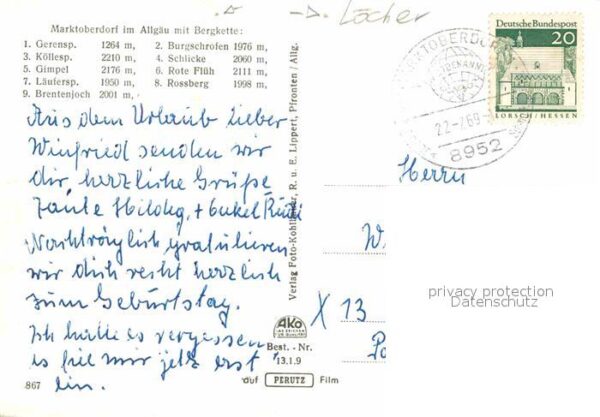 Löcher
Marktoberdorf im Allgäu mit Bergkette:
1. Gerensp. 1264 m, 2. Burgschrofen 1976 m,
3. Köllesp. 2210 m, 4. Schlicke 2060 m,
5. Gimpel 2176 m, 6. Rote Flüh 2111 m,
7. Läufersp. 1950 m, 8. Rossberg 1998 m,
9. Brentenjoch 2001 m,
Aus dem Urlaub lieber
Winfried senden wir
dir herzliche Grüße
Tante Hildeg. + Onkel
Nachträglich gratulieren
wir dich recht herzlich
zum Geburtstag.
Ich hatte es vergessen
es fiel mir jetzt erst
ein.
867
Verlag Foto-Kohlbauer, R. u. E. Lippert, Pfronten / Allg.
AKO
Best.-Nr.
13.1.9
auf PERUTZ Film
Deutsche Bundespost
20
LORSCH / HESSEN
MARKTOBERDORF
22.-7.69
8952
Herrn
W.
X 13
privacy protection
Datenschutz